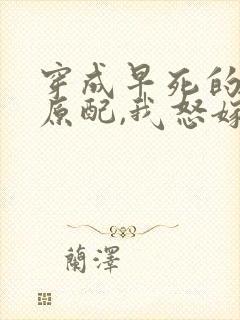 穿成早死的
原配,我怒嫁
蘭澤